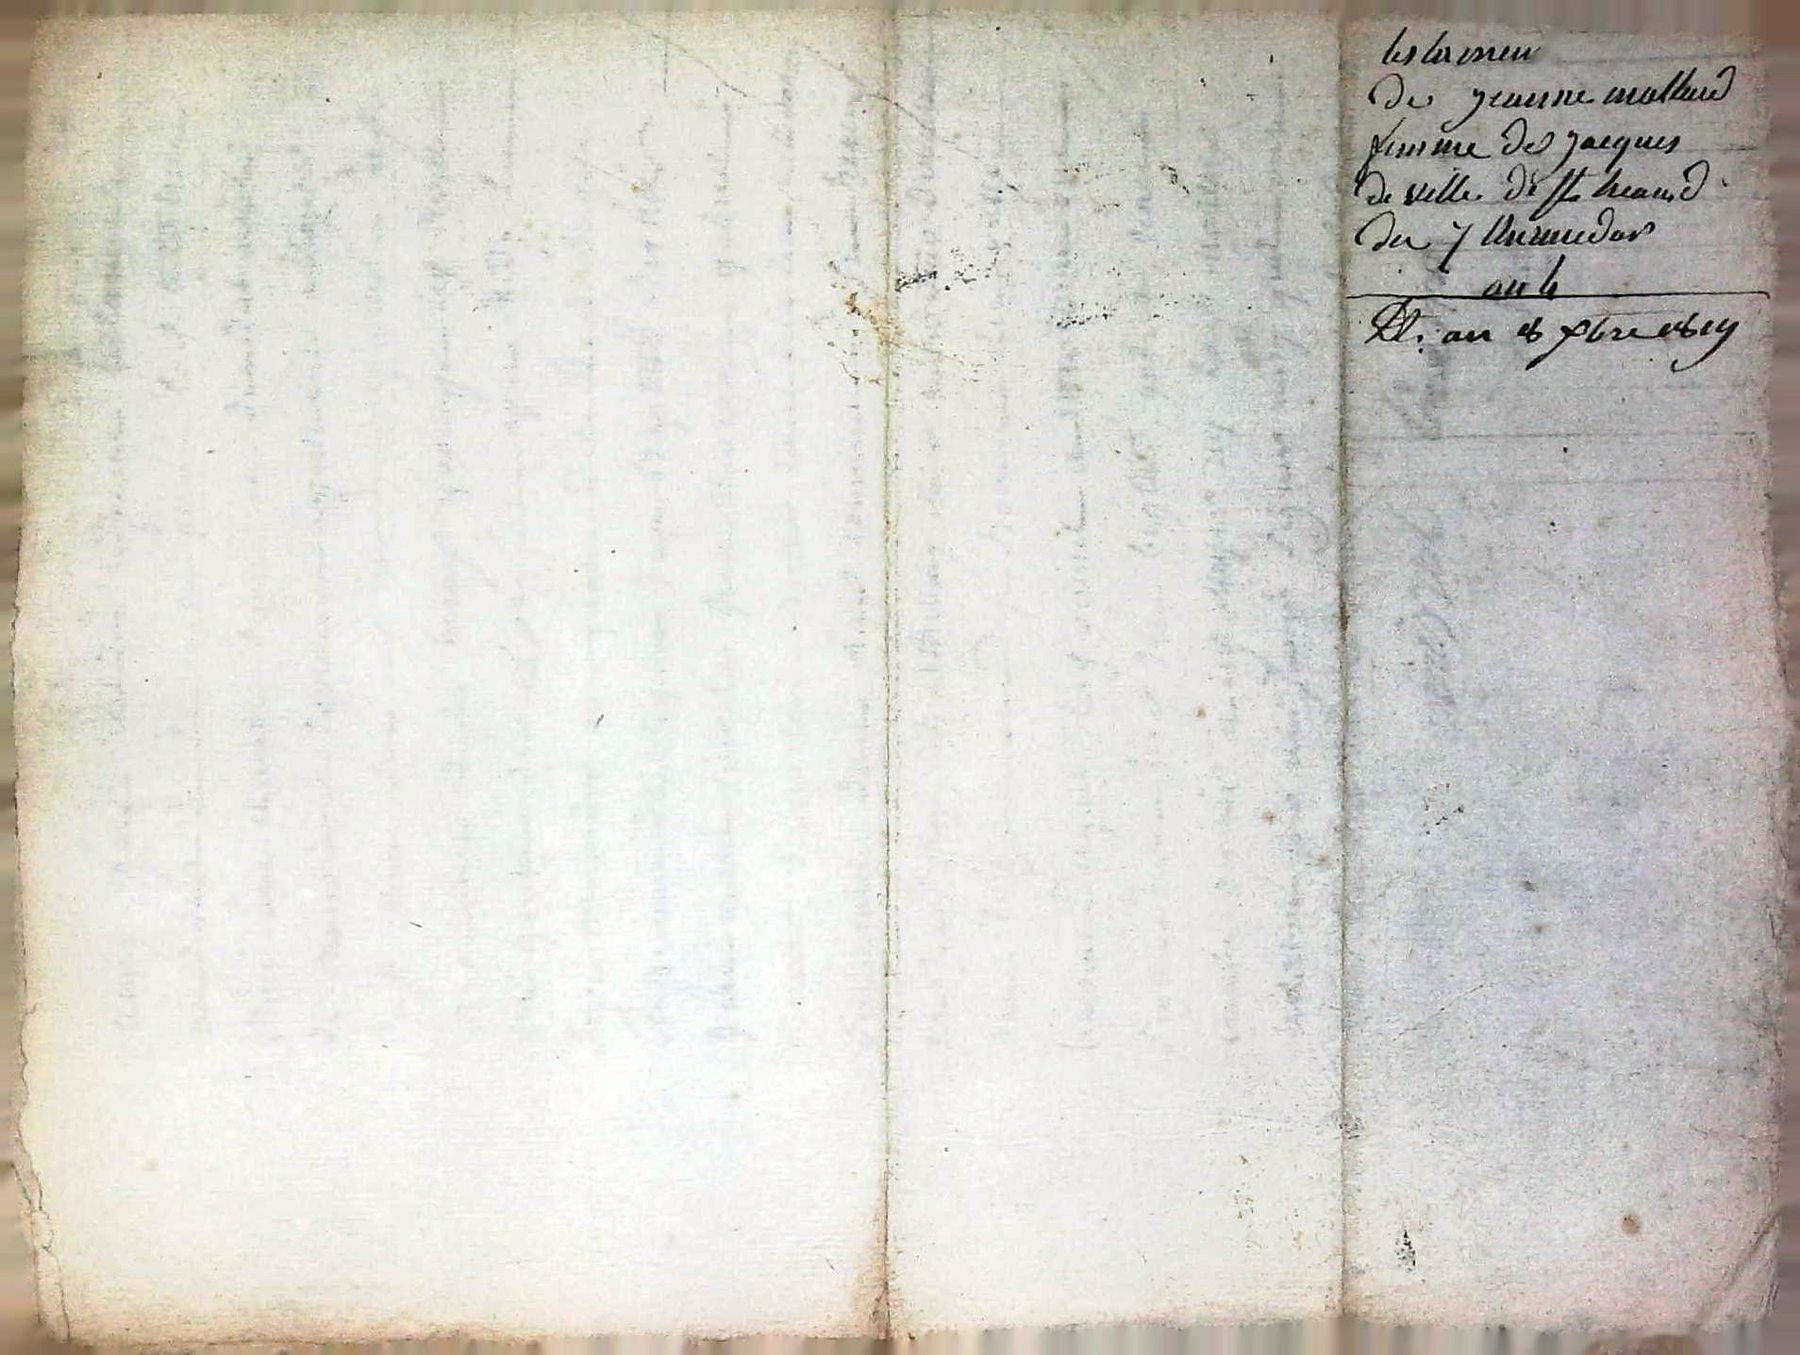 testamen
de jeanne mallard
femme de jacques
de ville de St heand
du 7 thermidor
an 4
Et. au 8 xbre 1819